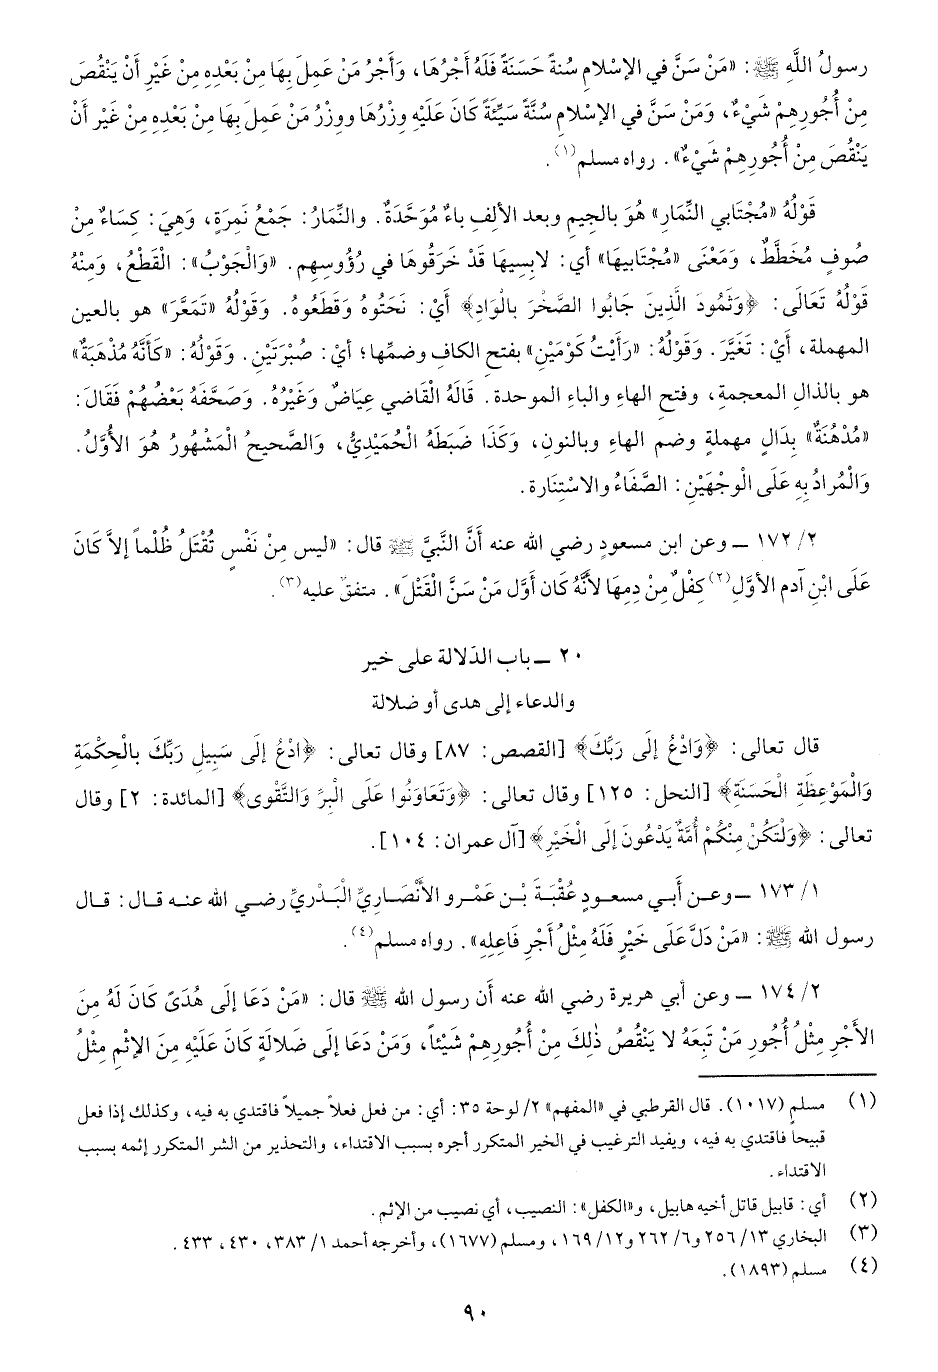 رسولُ اللَّهِ ﷺ: «مَنْ سَنَّ في الإسْلامِ سُنةً حَسَنَةً فَلَهُ أجْرُهَا، وَأجْرُ مَنْ عَمِلَ بِهَا مِنْ بَعْدِهِ مِنْ غَيْرِ أنْ يَنْقُصَ
مِنْ أُجُورِهِمْ شَيْءٌ، وَمَنْ سَنَّ في الإسْلامِ سُنَّةً سَيِّئَةً كَانَ عَلَيْهِ وِزْرُهَا ووِزْرُ مَنْ عَمِلَ بِهَا مِنْ بَعْدِهِ مِنْ غَيْرِ أنْ
يَنْقُصَ مِنْ أُجُورِهِمْ شَيْءٌ». رواه مسلم(١).
قَوْلُهُ «مُجْتَابي النِّمَارِ» هُوَ بالجيمِ وبعد الألِفِ باءٌ مُوَحَّدَةٌ. والنِّمَارُ: جَمْعُ نَمِرَةٍ، وَهِيَ: كِسَاءٌ مِنْ
صُوفٍ مُخَطَّطٌ، وَمَعْنَى «مُجْتابيهَا» أي: لابِسِيهَا قَدْ خَرَقُوهَا في رُؤُوسِهِم. «وَالجَوْبُ»: القَطْعُ، وَمِنْهُ
قَوْلُهُ تَعَالَى: ﴿وَثَمُودَ الَّذِينَ جَابُوا الصَّخْرَ بِالْوَادِ﴾ أيْ: نَحَتُوهُ وَقَطَعُوهُ. وَقَوْلُهُ «تَمَعَّرَ» هو بالعين
المهملة، أيْ: تَغَيَّرَ. وَقَوْلُهُ: «رَأيْتُ كَوْمَيْنِ» بفتح الكاف وضمِّها؛ أيْ: صُبْرَتَيْنِ. وَقَوْلُهُ: «كَأنَّهُ مُذْهَبَةٌ»
هو بالذال المعجمةِ، وفتح الهاءِ والباءِ الموحدة. قَالَهُ القَاضي عِيَاضٌ وَغَيْرُهُ. وَصَحَّفَهُ بَعْضُهُمْ فَقَالَ:
«مُدْهُنَةٌ» بِدَالٍ مهملةٍ وضم الهاءِ وبالنونِ، وَكَذَا ضَبَطَهُ الْحُمَيْدِيُّ، وَالصَّحيحُ الْمَشْهُورُ هُوَ الأوَّلُ.
وَالْمُرادُ بِهِ عَلَى الْوَجْهَيْنِ: الصَّفَاءُ والاسْتِنَارة.
١٧٢/٢ ــ وعن ابن مسعودٍ رضي الله عنه أنَّ النَّبيَّ ﷺ قال: «ليس مِنْ نَفْسٍ تُقْتَلُ ظُلْماً إلاَّ كَانَ
عَلَى ابْنِ آدم الأوَّلِ(٢) كِفْلٌ مِنْ دمِهَا لأنَّهُ كَان أوَّل مَنْ سَنَّ القَتْلَ». متفقٌ عليه(٣).
٢٠ ــ باب الدّلالة على خير
والدعاء إلى هدى أو ضلالة
قال تعالى: ﴿وَادْعُ إلَى رَبِّكَ﴾ [القصص: ٨٧] وقال تعالى: ﴿ادْعُ إلَى سَبِيلِ رَبِّكَ بالْحِكْمَةِ
وَالْمَوْعِظَةِ الْحَسَنَةِ﴾ [النحل: ١٢٥] وقال تعالى: ﴿وَتَعَاوَنُوا عَلَى الْبِرِّ وَالتَّقْوى﴾ [المائدة: ٢] وقال
تعالى: ﴿وَلْتَكُنْ مِنْكُمْ أُمَّةٌ يَدْعُونَ إلَى الْخَيْرِ﴾ [آل عمران: ١٠٤].
١٧٣/١ ــ وعن أبي مسعودٍ عُقْبَةَ بْنِ عَمْرو الأنْصَارِيِّ الْبَدْرِيِّ رضي الله عنه قال: قال
رسول الله ﷺ: «مَنْ دَلَّ عَلَى خَيْرٍ فَلَهُ مِثْلُ أجْرِ فَاعِلِهِ». رواه مسلم(٤).
١٧٤/٢ ــ وعن أبي هريرة رضي الله عنه أن رسول الله ﷺ قال: «مَنْ دَعَا إلى هُدَىً كَانَ لَهُ مِنَ
الأجْرِ مِثْلُ أُجُورِ مَنْ تَبِعَهُ لا يَنْقُصُ ذٰلِكَ مِنْ أُجُورِهِمْ شَيْئاً، وَمَنْ دَعَا إلَى ضَلالَةٍ كَانَ عَلَيْهِ مِنَ الإثْمِ مِثْلُ
(١) مسلم (١٠١٧). قال القرطبي في «المفهم» ٢/ لوحة ٣٥: أي: من فعل فعلاً جميلاً فاقتدي به فيه، وكذلك إذا فعل
قبيحاً فاقتدي به فيه، ويفيد الترغيب في الخير المتكرر أجره بسبب الاقتداء، والتحذير من الشر المتكرر إثمه بسبب
الاقتداء.
(٢) أي: قابيل قاتل أخيه هابيل، و«الكفل»: النصيب، أي نصيب من الإثم.
(٣) البخاري ٢٥٦/١٣ و٢٦٢/٦ و١٦٩/١٢، ومسلم (١٦٧٧)، وأخرجه أحمد ٣٨٣/١، ٤٣٠، ٤٣٣.
(٤) مسلم (١٨٩٣).
٩٠